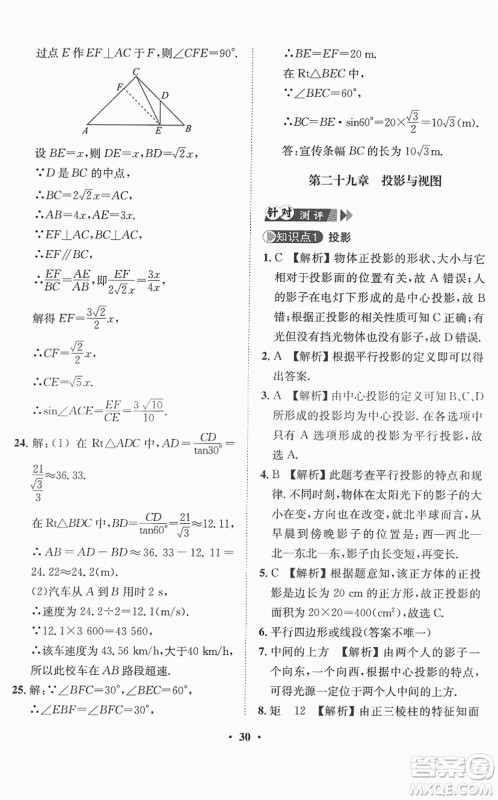 过点 E 作 EF⊥AC 于 F，则∠CFE=90°.
C
F
D
A
E
B
设 BE=x，则 DE=x，BD=√2x.
∵D 是 BC 的中点，
∴BC=2√2x，
∴AB=4x，AE=3x.
∵EF⊥AC，BC⊥AC，
∴EF∥BC，
∴EF/BC=AE/AB，即EF/2√2x=3x/4x
解得 EF=3√2/2 x，
∴CF=√2/2 x，
∴CE=√5x.
∴sin∠ACE=EF/CE=3√10/10.
24. 解：(1) 在 Rt△ADC 中，AD=CD/tan30°=
21/(√3/3)≈36.33.
在 Rt△BDC 中，BD=CD/tan60°=21/√3≈12.11，
∴AB=AD-BD=36.33-12.11=
24.22≈24.2(m).
(2)汽车从 A 到 B 用时 2 s，
∴速度为 24.2÷2=12.1(m/s).
∵12.1×3 600=43 560，
∴该车速度为 43.56 km/h，大于 40 km/h，
∴此校车在 AB 路段超速.
25. 解：∵∠BFC=30°，∠BEC=60°，
∴∠EBF=∠BFC=30°，
∴BE=EF=20 m.
在 Rt△BEC 中，
∵∠BEC=60°，
∴BC=BE·sin60°=20×√3/2=10√3(m).
答：宣传条幅 BC 的长是 10√3 m.
第二十九章 投影与视图
针对 测评
知识点1 投影
1. C 【解析】物体正投影的形状、大小与它
相对于投影面的位置有关，故 A 错误；人
的影子在电灯下形成的是中心投影，故 B
错误；正投影是平行投影，故 C 正确；有
光但没有挡光物体也没有影子，故 D 错误.
2. A 【解析】根据平行投影的定义即可得
出答案.
3. A 【解析】由中心投影的定义可知B、C、D
所形成的投影均为中心投影，选项 A 中的
投影为平行投影.
4. B 【解析】此题考查平行投影的特点和规
律. 不同时刻物体在太阳光下的影子的大小
在变，方向也在改变，就北半球而言，从
早晨到傍晚影子的指向是：西—西北—
北—东北—东.
5. C 【解析】根据题意知，该正方体的正投
影是边长为 20 cm 的正方形，故正投影的
面积为 20×20=400(cm²).
6. 平行四边形或线段(答案不唯一)
7. 中间的上方 【解析】由于两个人的影子
一个向东，一个向西，根据中心投影的特点
可得光源一定在两人中间的上方.
8. 矩 12 【解析】由正三棱柱的特征知面
· 30 ·
答案圈
MXQE.COM